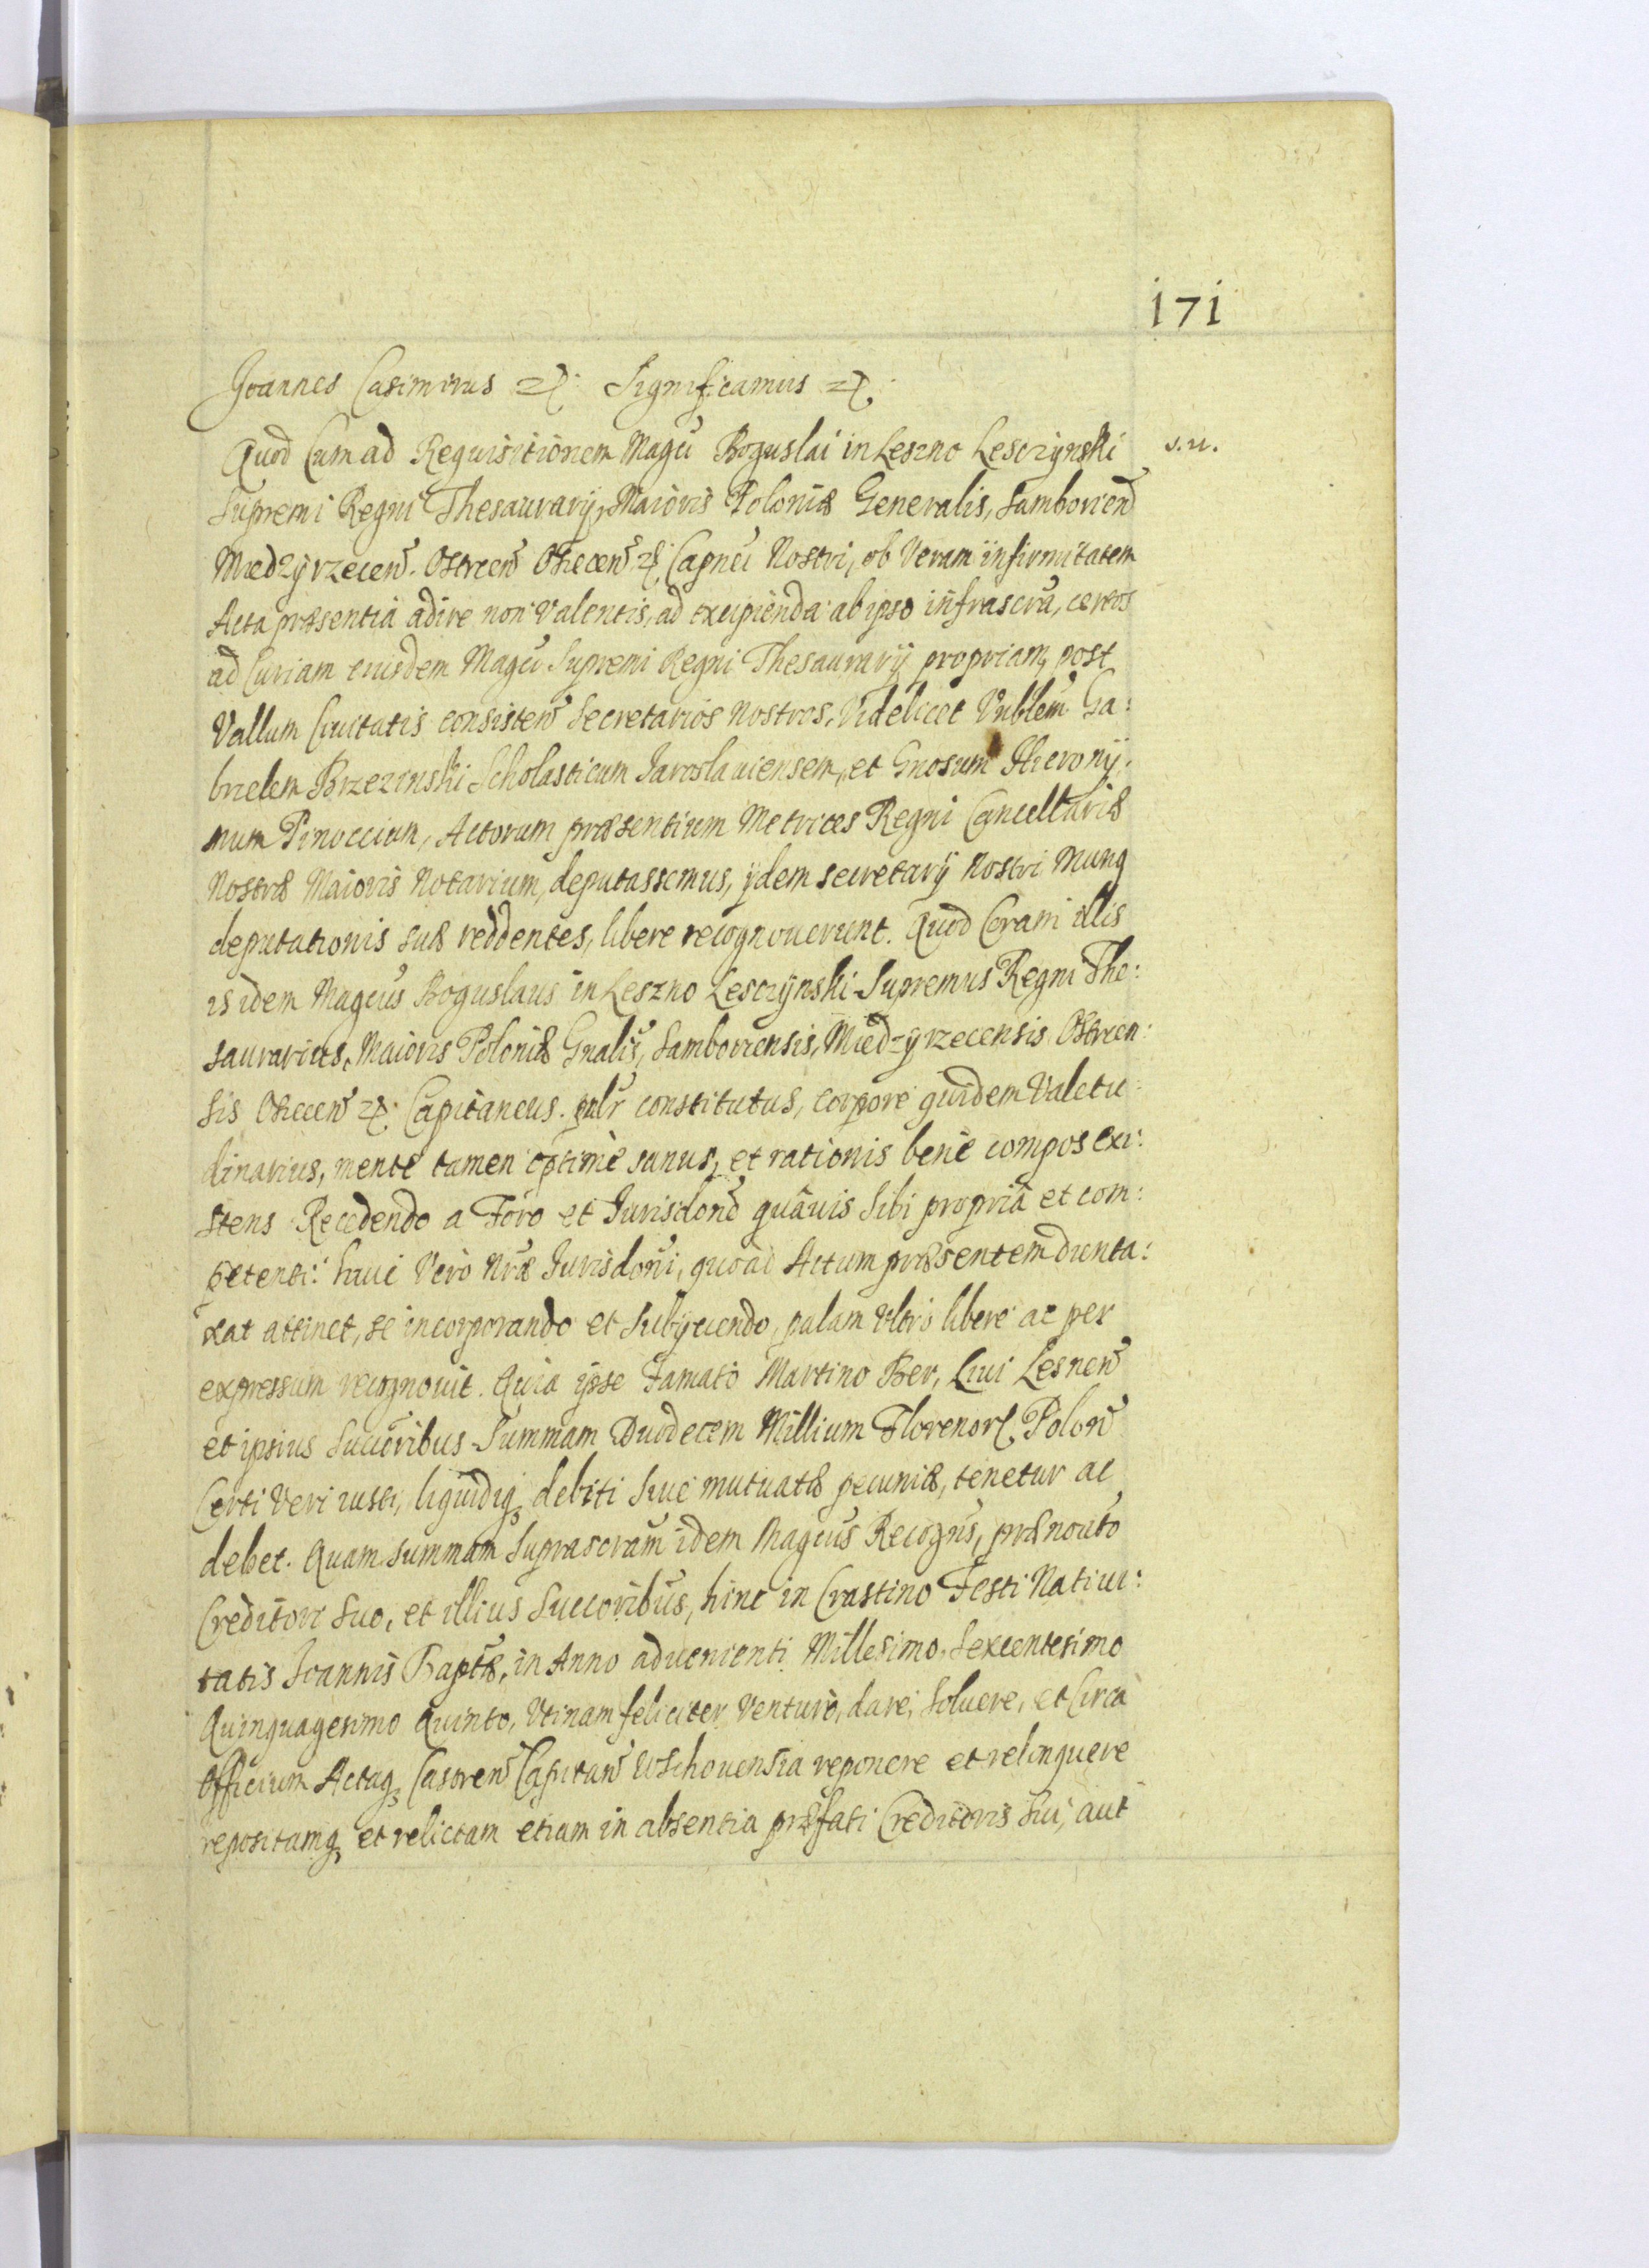 171
Joannes Casimirus etc: Significamus etc:
Quod Cum ad Requisitionem Magci Boguslai in Leszno Lesczynski
s. n.
Supremi Regni Thesaurarij, Maioris Poloniæ Generalis, Samborien
Miedzyrzecen. Ostrcen Osiecen etc. Capnei Nostri, ob Veram infirmitatem
Acta præsentia adire non Valentis, ad excipienda ab ipso infrascra, certos
ad Curiam eiusdem Magci Supremi Regni Thesaurarij propriam, post
Vallum Ciuitatis consisten Secretarios Nostros, Videlicet Vnblem Ga:
brielem Brzezinski Scholasticum Jaroslauiensem, et Gnosum Hierony:
mum Pinoccium, Actorum præsentium Metrices Regni Cancellariæ
Nostræ Maioris Notarium, deputassemus, ijdem secretarij Nostri Munq
deputationis suæ reddentes, libere recognouerunt. Quod Coram illis
is idem Magcus Boguslaus in Leszno Lesczynski Supremus Regni The:
saurarius, Maioris Poloniæ Gnalis, Samboriensis, Miedzyrzecensis Ostrcen:
sis Osiecen etc. Capitaneus. pnlr constitutus, corpore quidem Valetu:
dinarius, mente tamen optimè sanus, et rationis benè compos exi:
stens Recedendo a Foro et Jurisdone quauis Sibi propria et com:
petenti: huic Vero Nræ Jurisdoni, quoad Actum præsentem dunta:
xat attinet, se incorporando et Subijciendo, palam Vltrò liberè ac per
expressum recognouit. Quia ipse Famato Martino Ber, Ciui Lesnen
et ipsius Succoribus Summam Duodecem Millium Florenor Polon
Certi Veri iusti, liquidiq debiti Siue mutuatæ pecuniæ, tenetur ac
debet. Quam summam Suprascram idem Magcus Recogns, prænoiato
Creditori suo, et illius Succoribus, hinc in Crastino Festi Natiui:
tatis Joannis Baptæ, in Anno aduenienti Millesimo, Sexcentesimo
Quinquagesimo Quinto, Vtinam feliciter Venturo, dare, Soluere, et Circa
Officium Actaq Castren Capitan Wschouensia reponere et relinquere
repositamq et relictam etiam in absentia præfati Creditoris Sui, aut